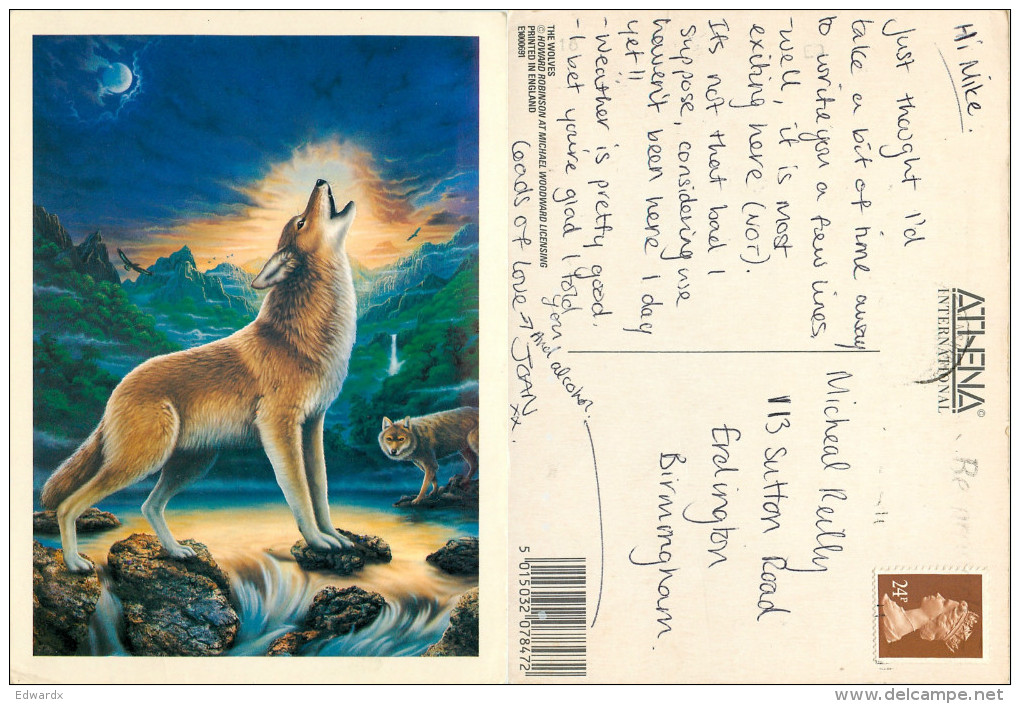 Hi Mike.
Just thought I'd
take a bit of time away
to write you a few lines,
-well, it is most
exiting here (NOT).
Its not that bad I
suppose, considering we
haven't been here 1 day
yet!!
- Weather is pretty good.
- I bet you're glad I told
you!
And alcohol.
Loads of love → JOAN
xx.
THE WOLVES
© HOWARD ROBINSON AT MICHAEL WOODWARD LICENSING
PRINTED IN ENGLAND
EW00691
ATHENA©
INTERNATIONAL
Micheal Reilly
113 Sutton Road
Erdington
Birmingham.
24P
5 015032 078472
Edwardx
delcampe.net